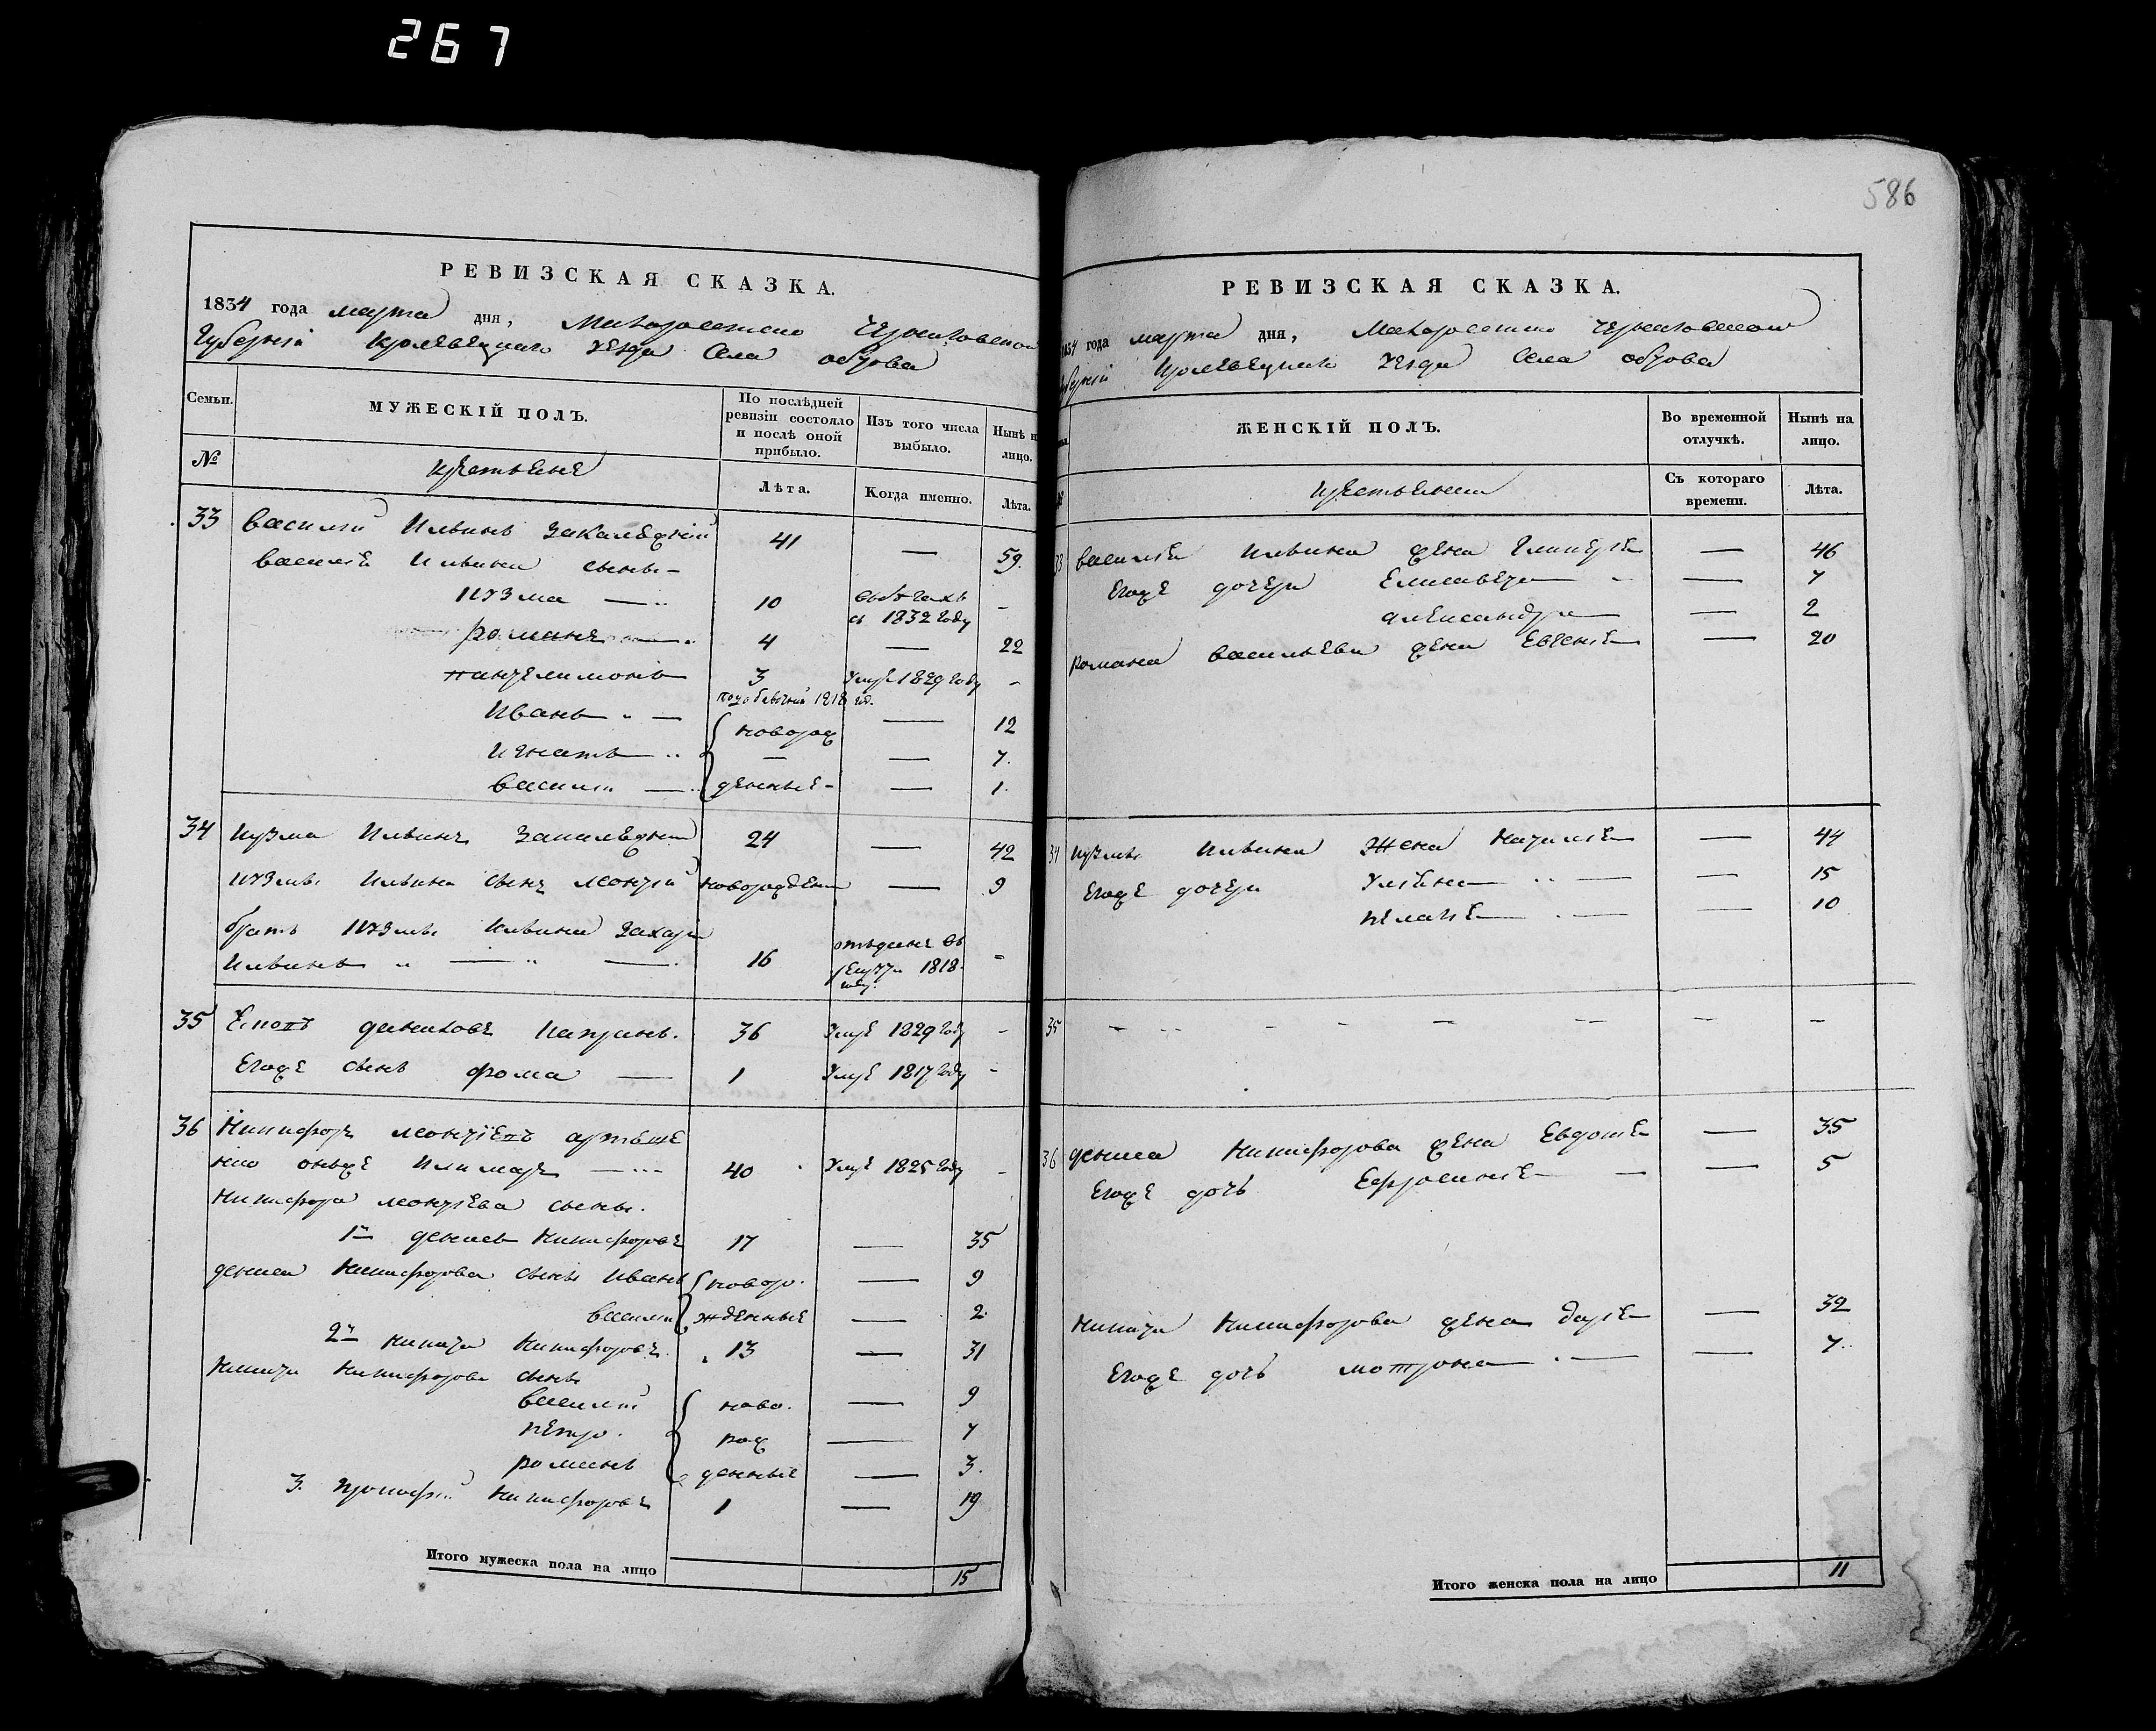 267
586
РЕВИЗСКАЯ СКАЗКА.
1834 года марта дня, Малороссийской Черниговской
Губернии Кролевецкого уезда Села обтова
Семьи.
МУЖЕСКІЙ ПОЛЪ.
По послѣдней ревизіи состояло и послѣ оной прибыло.
Изъ того числа выбыло.
Нынѣ на лицо.
№
крестьяне
Лѣта.
Когда именно.
Лѣта.
33 василий Ильинъ 41 — 59.
василия Ильина сыны -
кузма — 10 в 1832 году -
романъ — 4 — 22
пантелимонъ 3 умре 1829 году -
1818 год.
Иванъ — новорож — 12
игнатъ — — 7.
василий — денные - — 1.
34 кузма Ильинъ 24 — 42
кузмы Ильина сынъ леонтий новорожден — 9
братъ кузмы Ильина захари
Ильинъ — 16 отъданъ въ рекруты 1818 году. -
35 36 умре 1829 году -
Егоже сынъ фома — 1 умре 1817 году -
36 Никифоръ
онъже — 40 умре 1825 году -
Никифора леонтіева сыны.
1й денисъ Никифоровъ 17 — 35
дениса Никифорова сыны Иванъ новоро. — 9
василий жденные — 2.
2й никита Никифоровъ 13 — 31
Никиты Никифорова сыны
василий ново. — 9
петро. рож — 7
романъ денные — 3.
3. прокофий Никифоровъ 1 — 19
Итого мужеска пола на лицо 15
РЕВИЗСКАЯ СКАЗКА.
1834 года марта дня, Малороссийской Черниговской
Губернии Кролевецкого уезда Села обтова
ЖЕНСКІЙ ПОЛЪ.
Во временной отлучкѣ.
Нынѣ на лицо.
крестьянки
Съ котораго времени.
Лѣта.
33 василия Ильина жена Гликерия — 46
Егоже дочери Елисавета — 7
александра — 2
романа васильева жена Евгения — 20
34 кузмы Ильина Жена Наталия — 44
Егоже дочери Улияна — 15
пелагея — 10
35 - - - - - - - -
36 дениса Никифорова жена Евдокия — 35
Егоже дочь Ефросиния — 5
Никиты Никифорова жена дарія — 32
Егоже дочь мотрона — 7..
Итого женска пола на лицо 11